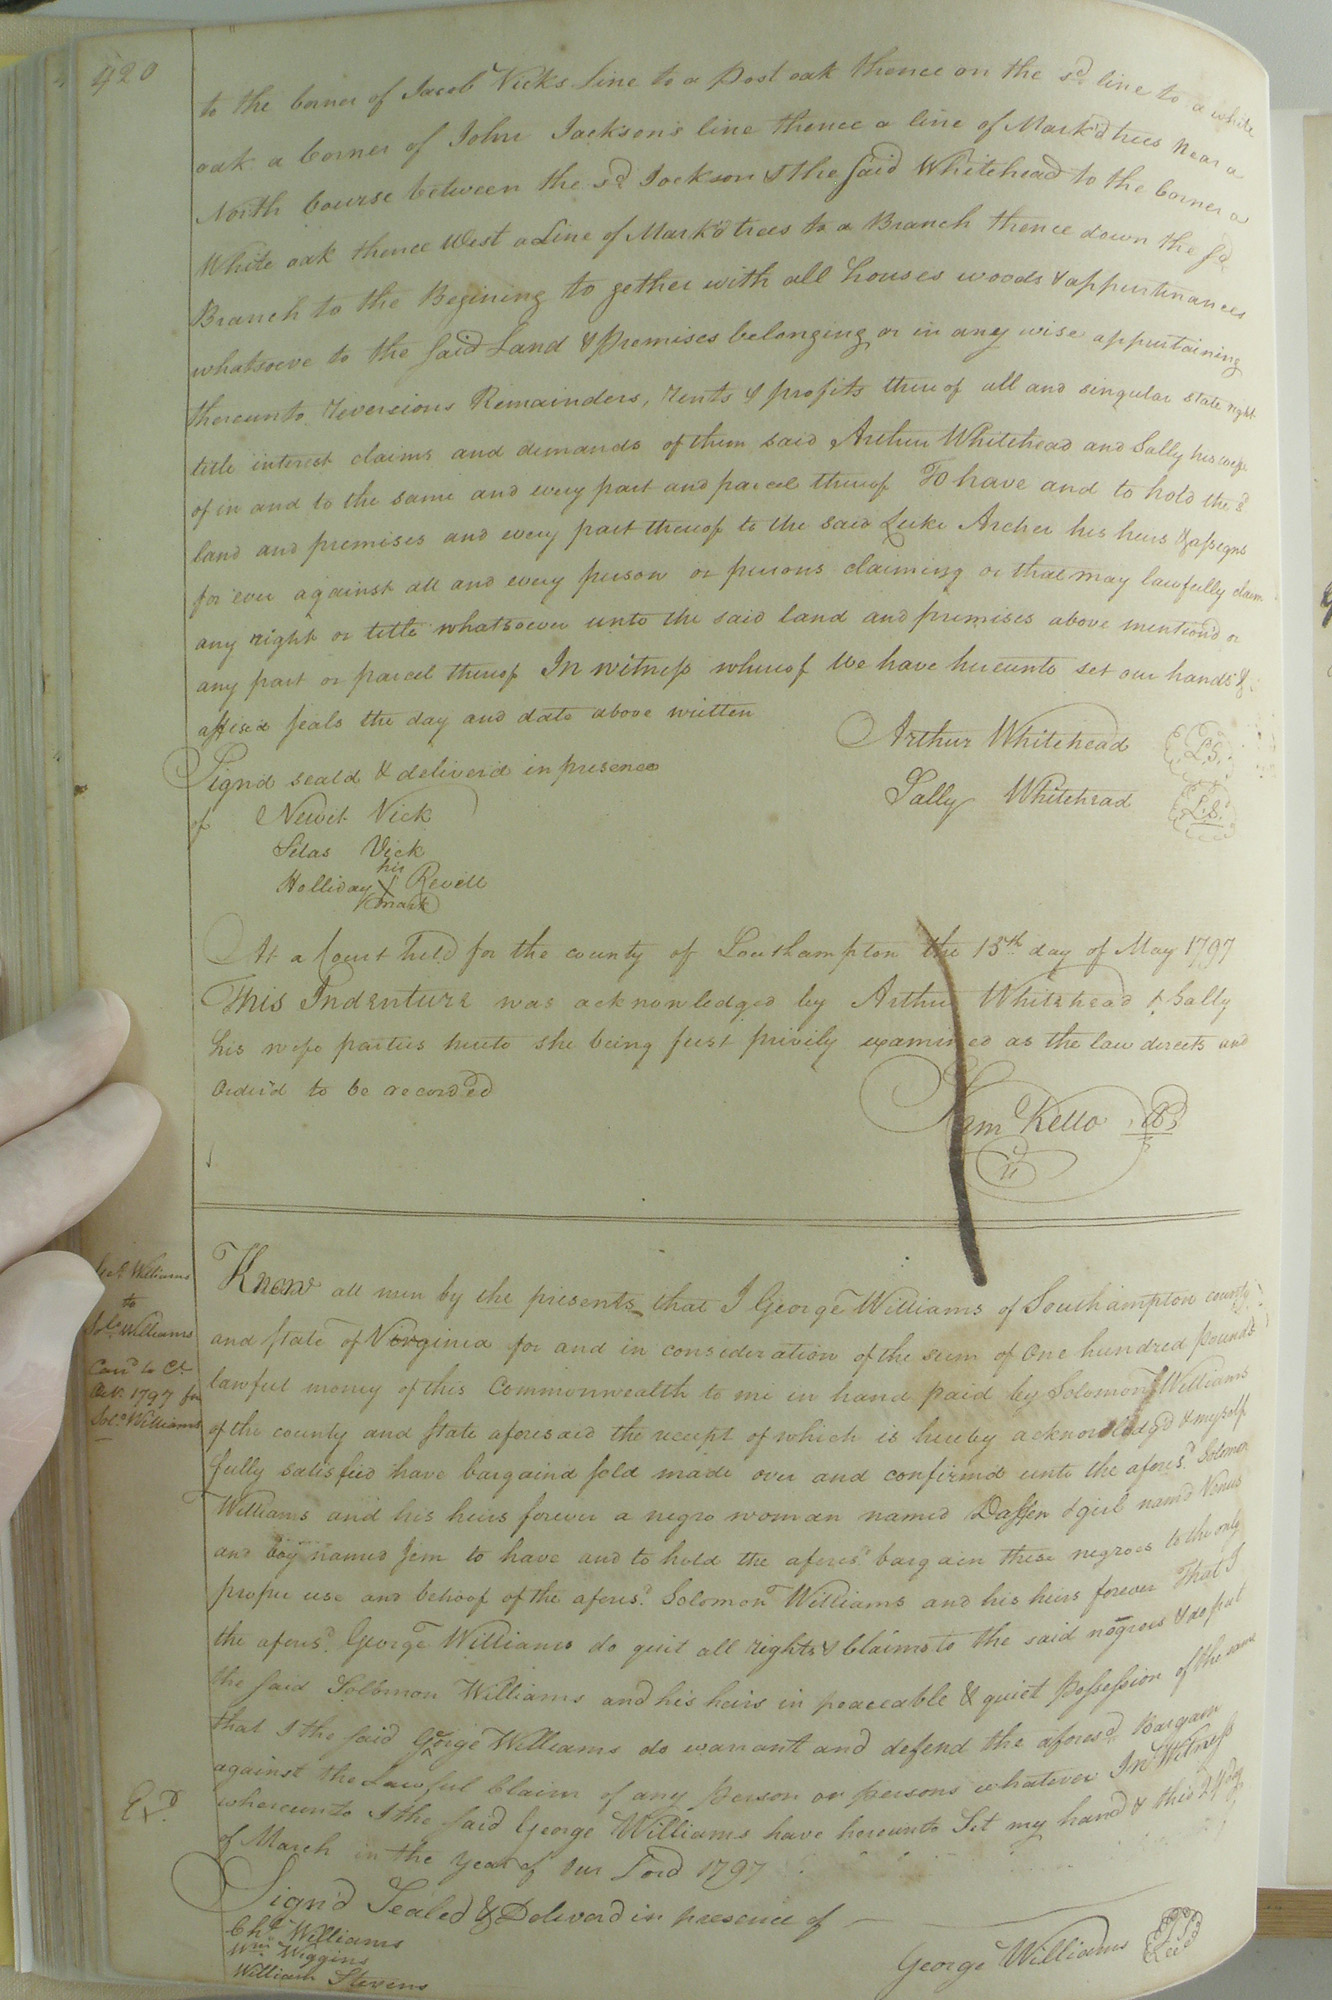 420
to the Corner of Jacob Vicks line to a Post oak thence on the sd. line to a white
oak a Corner of John Jackson's line thence a line of Mark'd trees near a
North Course between the sd. Jackson & the said Whitehead to the Corner a
White oak thence West a Line of Mark'd trees to a Branch thence down the sd.
Branch to the Begining to gether with all houses woods & appurtenances
whatsoeve to the said Land & premises belonging or in any wise appurtaining
thereunto reversions Remainders, rents & profits thereof all and singular state right
title interest claims and demands of them said Arthur Whitehead and Sally his wife
of in and to the same and every part and parcel thereof To have and to hold the sd.
land and premises and every part thereof to the said Luke Archer his heirs & assigns
for ever against all and every person or persons claiming or that may lawfully claim
any right or title whatsoever unto the said land and premises above mention'd or
any part or parcel thereof In witness whereof We have hereunto set our hands &
affix'd seals the day and date above written
Arthur Whitehead L.S.
Sign'd seald & deliver'd in presence
Sally Whitehead L.S.
of Newit Vick
Silas Vick
his
Holliday X Revell
mark
At a Court held for the county of Southampton the 15th day of May 1797
This Indenture was acknowledged by Arthur Whitehead & Sally
his wife parties hereto she being first privily examined as the law directs and
Order'd to be recorded
Sam Kello
Geo. Williams
to
Sol. Williams
Oct. 1797 for
Sol. Williams
Know all men by the presents that I George Williams of Southampton county
and State of Virginia for and in consideration of the sum of One hundred pounds
lawful money of this Commonwealth to me in hand paid by Solomon Williams
of the county and State aforesaid the receipt of which is hereby acknowledg'd & myself
fully satisfied have bargain'd sold made over and confirmd unto the afores'd. Solomon
Williams and his heirs forever a negro woman named Dassen & girl nam'd Venus
and boy named Jem to have and to hold the afores'd. bargain these negroes to the only
proper use and behoof of the afores'd. Solomon Williams and his heirs forever That I
the afores'd. George Williams do quit all rights & Claims to the said negroes & do put
the said Solomon Williams and his heirs in peaceable & quiet Possession of the same
that I the said George Williams do warrant and defend the aforesd. Bargain
against the Lawful Claim of any Person or persons whatever In Witness
whereunto I the said George Williams have hereunto Set my hand & this day
Ex'd.
of March in the year of our Lord 1797
Sign'd Sealed & Deliver'd in presence of
Chd. Williams
Wm. Wiggins
William Stevens
George Williams